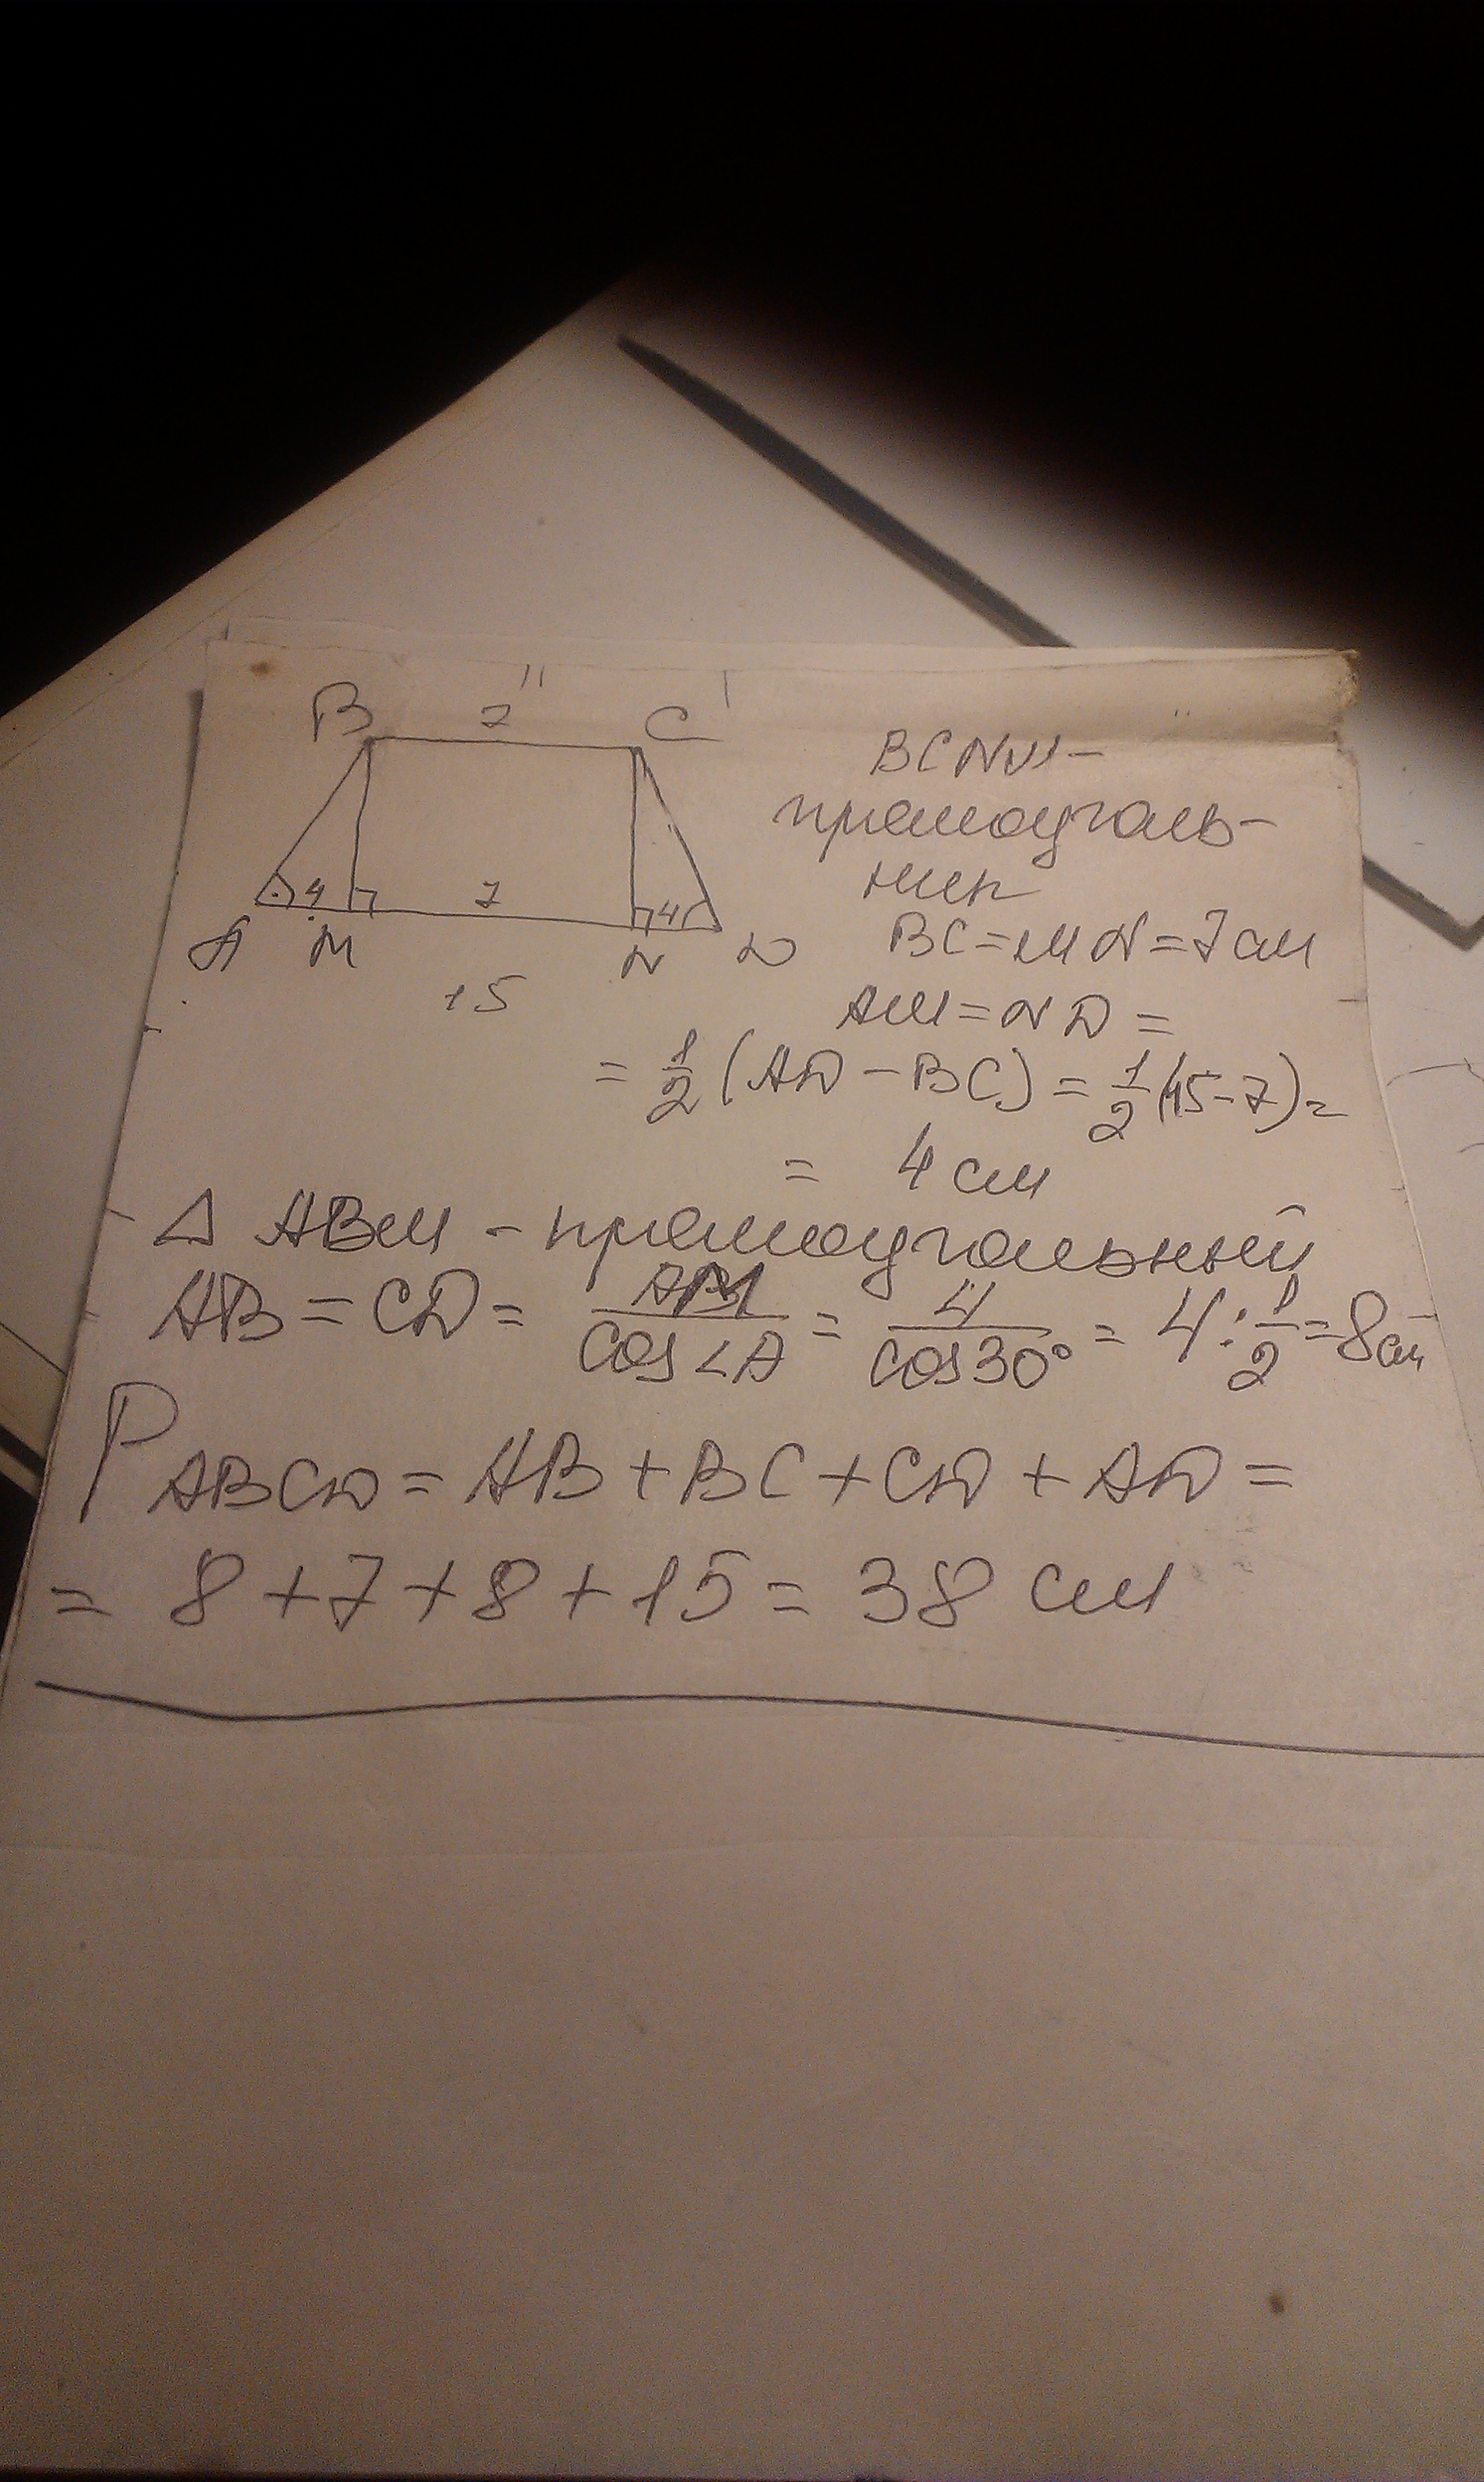 B 7 C
4 7 4
A M N D
15
BCNM –
прямоуголь-
ник
BC = MN = 7 см
AM = ND =
= 1/2 (AD – BC) = 1/2 (15 – 7) =
= 4 см
Δ ABM – прямоугольный
AB = CD = AM/cos∠A = 4/cos30° = 4 : 1/2 = 8 см
P ABCD = AB + BC + CD + AD =
= 8 + 7 + 8 + 15 = 38 см